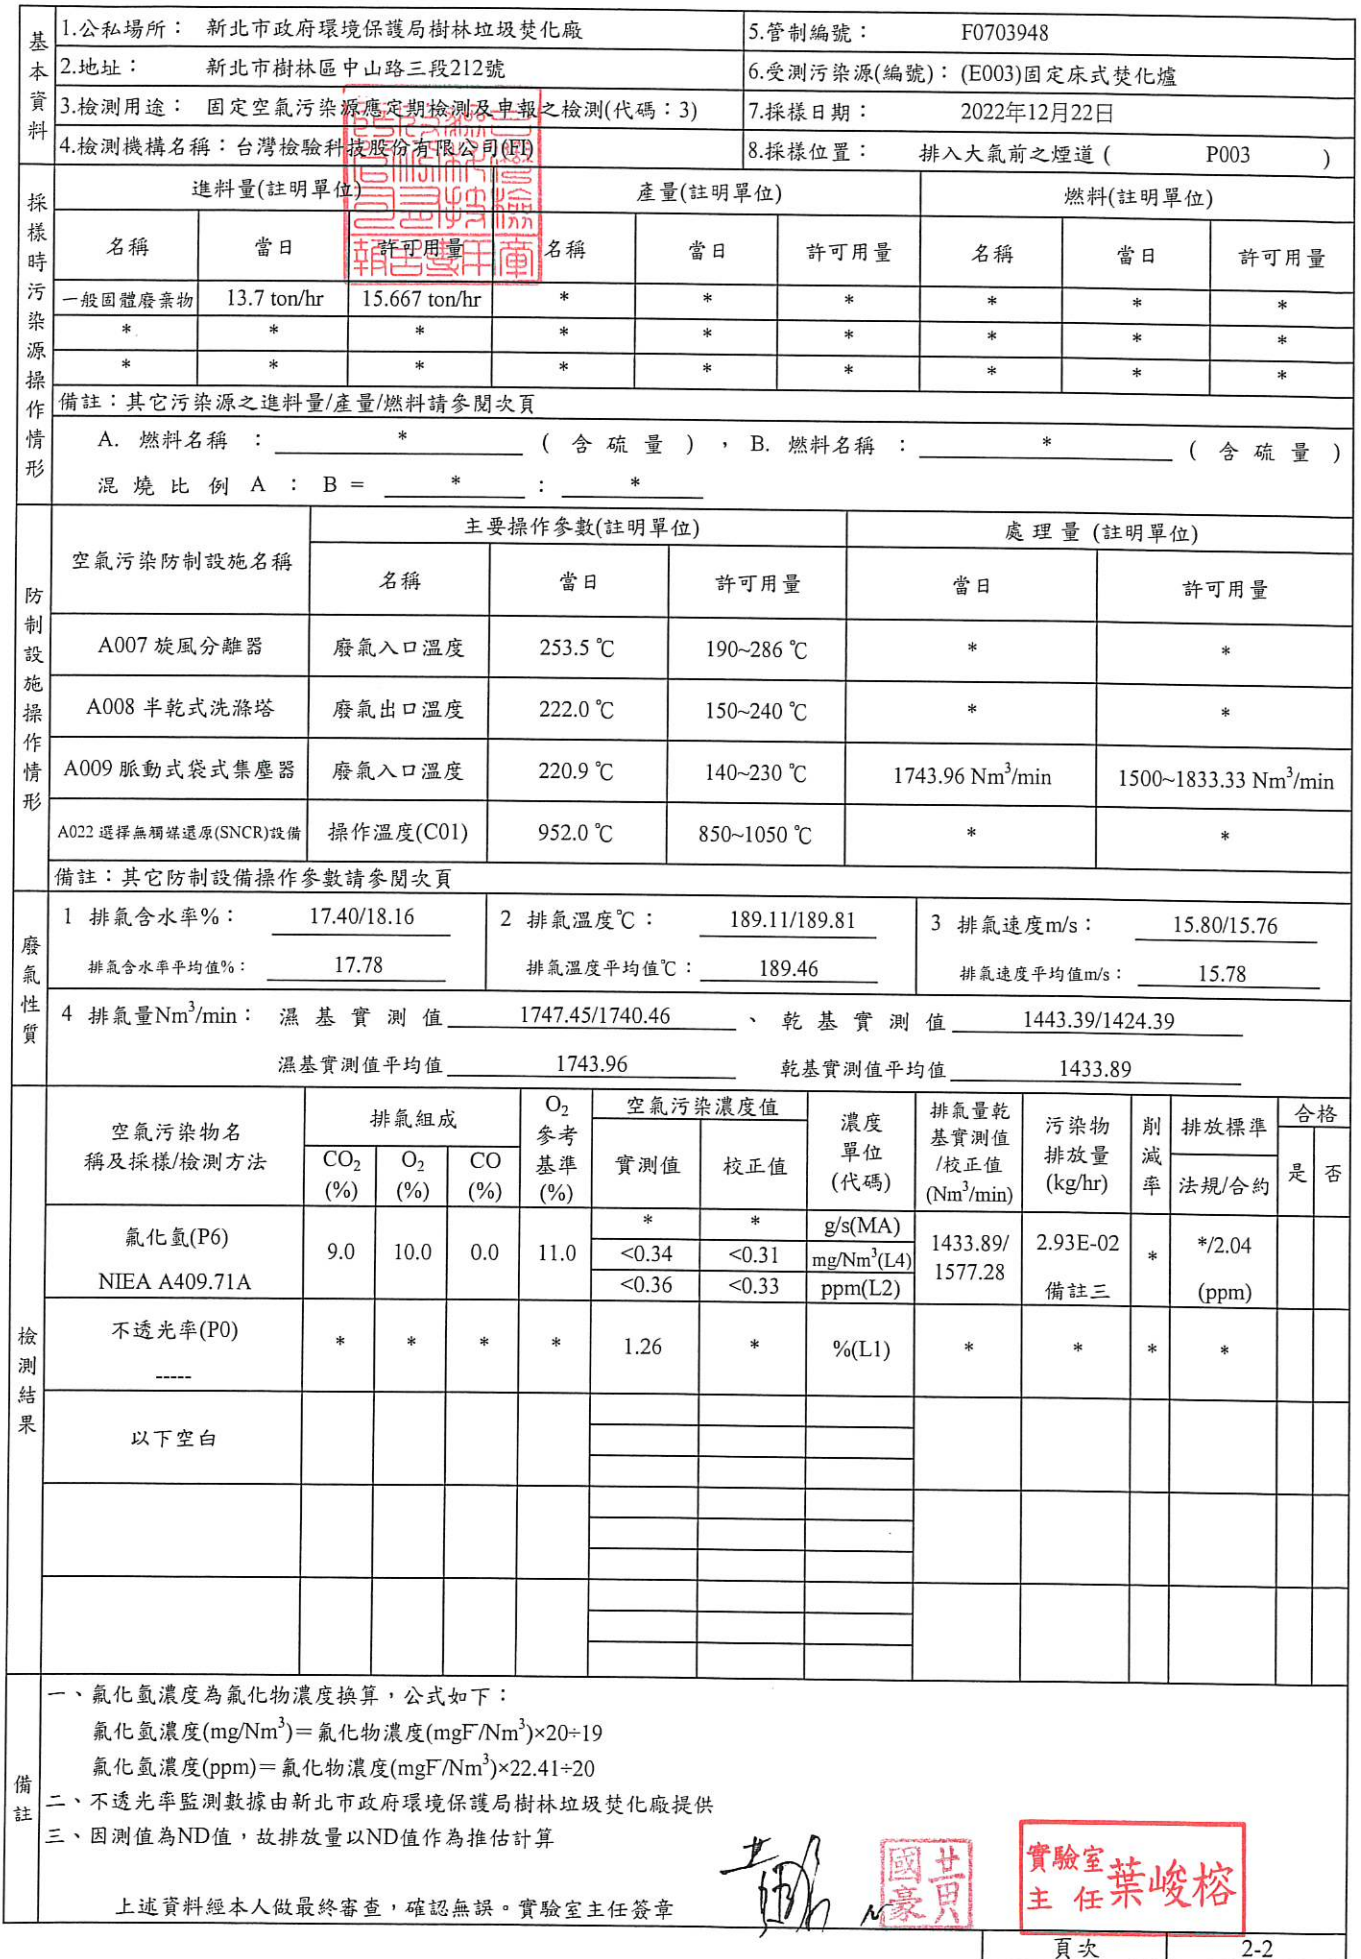 基本資料
1.公私場所： 新北市政府環境保護局樹林垃圾焚化廠
5.管制編號： F0703948
2.地址： 新北市樹林區中山路三段212號
6.受測污染源(編號)： (E003)固定床式焚化爐
3.檢測用途： 固定空氣污染源應定期檢測及申報之檢測(代碼：3)
7.採樣日期： 2022年12月22日
4.檢測機構名稱：台灣檢驗科技股份有限公司(FI)
8.採樣位置： 排入大氣前之煙道 ( P003 )
採樣時污染源操作情形
進料量(註明單位) 產量(註明單位) 燃料(註明單位)
名稱 當日 許可用量 名稱 當日 許可用量 名稱 當日 許可用量
一般固體廢棄物 13.7 ton/hr 15.667 ton/hr * * * * * *
* * * * * * * * *
* * * * * * * * *
備註：其它污染源之進料量/產量/燃料請參閱次頁
A. 燃料名稱 ： * ( 含 硫 量 ) ， B. 燃料名稱 ： * ( 含 硫 量 )
混 燒 比 例 A ： B = * : *
防制設施操作情形
空氣污染防制設施名稱 主要操作參數(註明單位) 處 理 量 (註明單位)
名稱 當日 許可用量 當日 許可用量
A007 旋風分離器 廢氣入口溫度 253.5 ℃ 190~286 ℃ * *
A008 半乾式洗滌塔 廢氣出口溫度 222.0 ℃ 150~240 ℃ * *
A009 脈動式袋式集塵器 廢氣入口溫度 220.9 ℃ 140~230 ℃ 1743.96 Nm³/min 1500~1833.33 Nm³/min
A022 選擇無觸媒還原(SNCR)設備 操作溫度(C01) 952.0 ℃ 850~1050 ℃ * *
備註：其它防制設備操作參數請參閱次頁
廢氣性質
1 排氣含水率%： 17.40/18.16 2 排氣溫度℃： 189.11/189.81 3 排氣速度m/s： 15.80/15.76
排氣含水率平均值%： 17.78 排氣溫度平均值℃： 189.46 排氣速度平均值m/s： 15.78
4 排氣量Nm³/min： 濕 基 實 測 值 1747.45/1740.46 、 乾 基 實 測 值 1443.39/1424.39
濕基實測值平均值 1743.96 乾基實測值平均值 1433.89
檢測結果
空氣污染物名稱及採樣/檢測方法 排氣組成 O₂參考基準(%) 空氣污染濃度值 濃度單位(代碼) 排氣量乾基實測值/校正值(Nm³/min) 污染物排放量(kg/hr) 削減率 排放標準 合格
CO₂(%) O₂(%) CO(%) 實測值 校正值 法規/合約 是 否
氟化氫(P6) NIEA A409.71A 9.0 10.0 0.0 11.0 * * g/s(MA) 1433.89/1577.28 2.93E-02 備註三 * */2.04 (ppm)
<0.34 <0.31 mg/Nm³(L4)
<0.36 <0.33 ppm(L2)
不透光率(P0) ----- * * * * 1.26 * %(L1) * * * *
以下空白
備註
一、氟化氫濃度為氟化物濃度換算，公式如下：
氟化氫濃度(mg/Nm³)＝氟化物濃度(mgF⁻/Nm³)×20÷19
氟化氫濃度(ppm)＝氟化物濃度(mgF⁻/Nm³)×22.41÷20
二、不透光率監測數據由新北市政府環境保護局樹林垃圾焚化廠提供
三、因測值為ND值，故排放量以ND值作為推估計算
上述資料經本人做最終審查，確認無誤。實驗室主任簽章
黃國豪
實驗室主任 葉峻榕
頁次 2-2